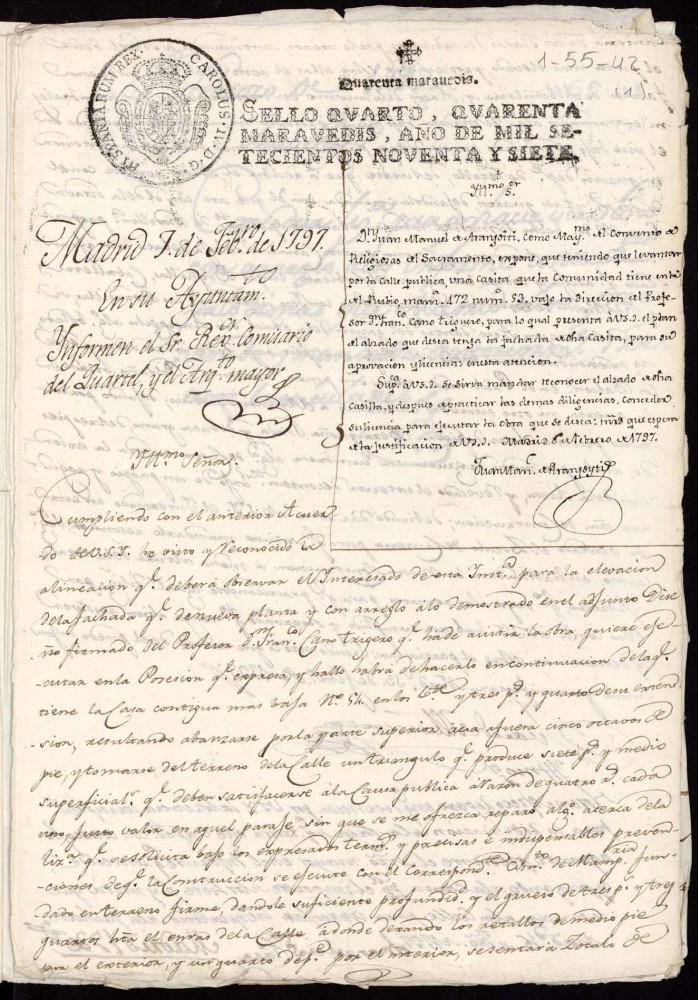 1-55-42
(1)
Quarenta maravedis.
SELLO QVARTO, QVARENTA
MARAVEDIS, AÑO DE MIL SE-
TECIENTOS NOVENTA Y SIETE.
CAROLUS IV D. G. HISPANIARUM REX.
Yllmo. Sor.
Dn. Juan Manuel de Aranjoiti, como Maymo. del Convento de
Religiosas del Sacramento, expone, que teniendo que levantar
por la Calle publica, una Casita que la Comunidad tiene en la
del Rubio, manza. 472 num. 53, vajo la Direccion del Profe-
sor Dn. Franco. Cano triguero, para lo qual presenta a V.S.I. el plan
del alzado que desea tenga la fachada de dha Casita, para su
aprovacion y licencia: en esta atencion.
Supca. a V.S.I. se sirva mandar reconocer el alzado de dha
Casilla, y despues de practicar las demas diligencias, conceda
su licencia para executar la Obra que se desea: mrd. que espera
de la justificacion de V.S.I. Madrid 6 de Febrero de 1797.
Juan Manl. de Aranjoyti
Madrid 7. de Febro. de 1797.
En su Ayuntamto.
Ynformen el Sr. Rexor. Comisario
del Quartel, y el Arqto. mayor
Yllmo. Señor.
Cumpliendo con el anterior Acuer-
do de V.S.I. he visto y reconocido la
alineacion q. deberá observar el Interesado de esta Insta. para la elevacion
de la fachada q. de nueva planta y con arreglo á lo demostrado en el adjunto Dise
ño firmado del Profesor Dn. Franco. Cano trigero q. ha de asistir la obra, quiere eje-
cutar en la Posesion q. expresa, y hallo habrá de hacerlo en continuacion de la q.
tiene la Casa contigua mas baja No. 54. en los y tres ps. y quarto de su exten-
sion, resultando abanzarse por la parte superior acia afuera cinco octavos de
pie, y tomarse del terreno de la Calle un triangulo q. produce siete ps. y medio
superficials. q. deben satisfacerse á la Causa publica á razon de quatro rs. cada
uno, justo valor en aquel parage, sin que se me ofrezca reparo algo. acerca de la
liza. q. se solicita bajo los expresados termos. y precisas é indispensables preven-
ciones de q. la Contruccion se execute con el correspondte. Cimto. de Mampria. fun-
dado en terreno firme, dandole suficiente profundid. y el grueso de tres ps. y tres
quartos hta el enras de la Calle adonde dexando los retallos de medio pie
por el exterior, y un quarto de pe. por el interior, se sentará Zocalo de